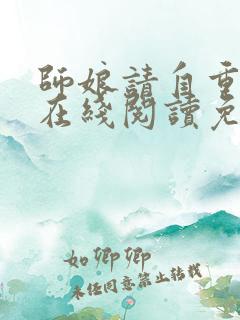 師娘請自重
在綫閱讀免
如卿卿
未经同意禁止转载